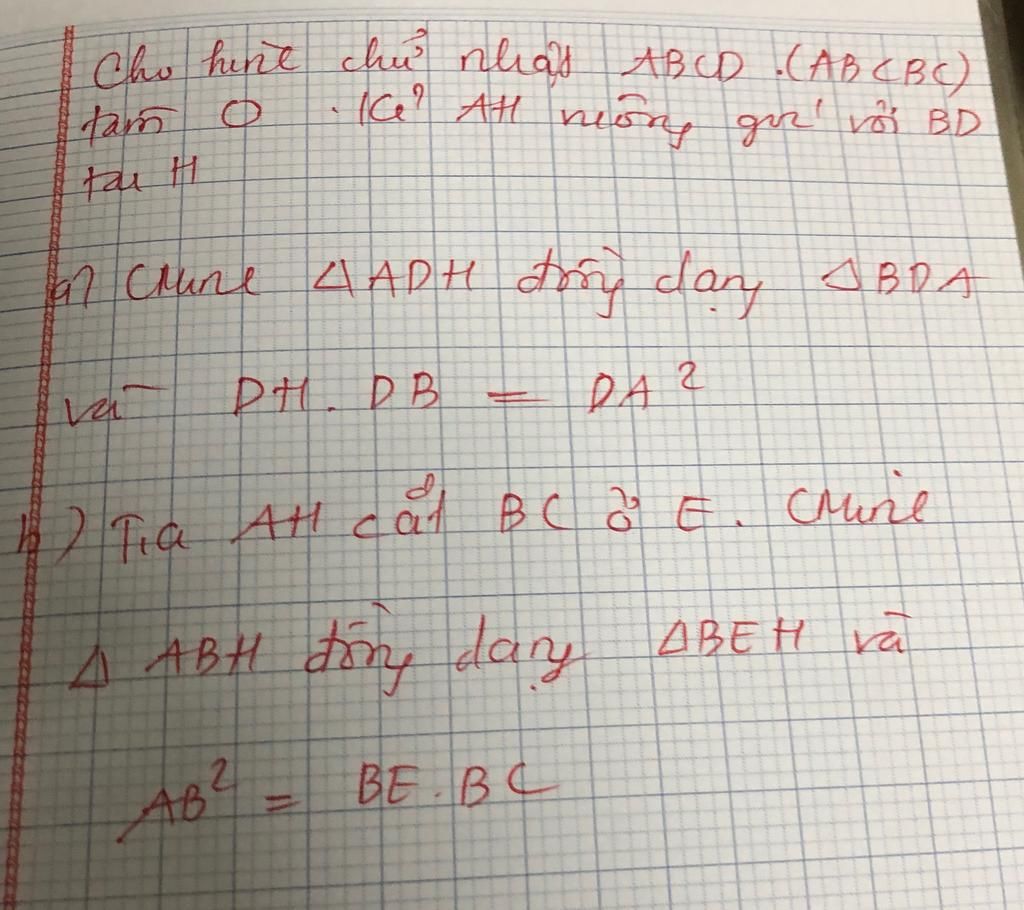 Cho hình chữ nhật ABCD . (AB < BC)
tâm O . Kẻ AH vuông góc với BD
tại H
a) Cminh ΔADH đồng dạng ΔBDA
và DH . DB = DA²
b) Tia AH cắt BC ở E . Cminh
Δ ABH đồng dạng ΔBEH và
AB² = BE . BC